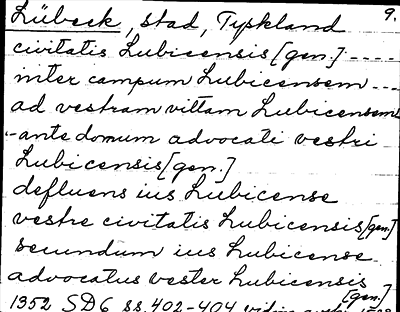 Lübeck, stad, Tyskland 9.
civitatis Lubicensis [gen.] ----
inter campum Lubicensem ---
ad vestram villam Lubicensem
-ante domum advocati vestri
Lubicensis [gen.]
defluens ius Lubicense
vestre civitatis Lubicensis [gen.]
secundum ius Lubicense
advocatus vester Lubicensis
[gen.]
1352 SD6 ss. 402-404